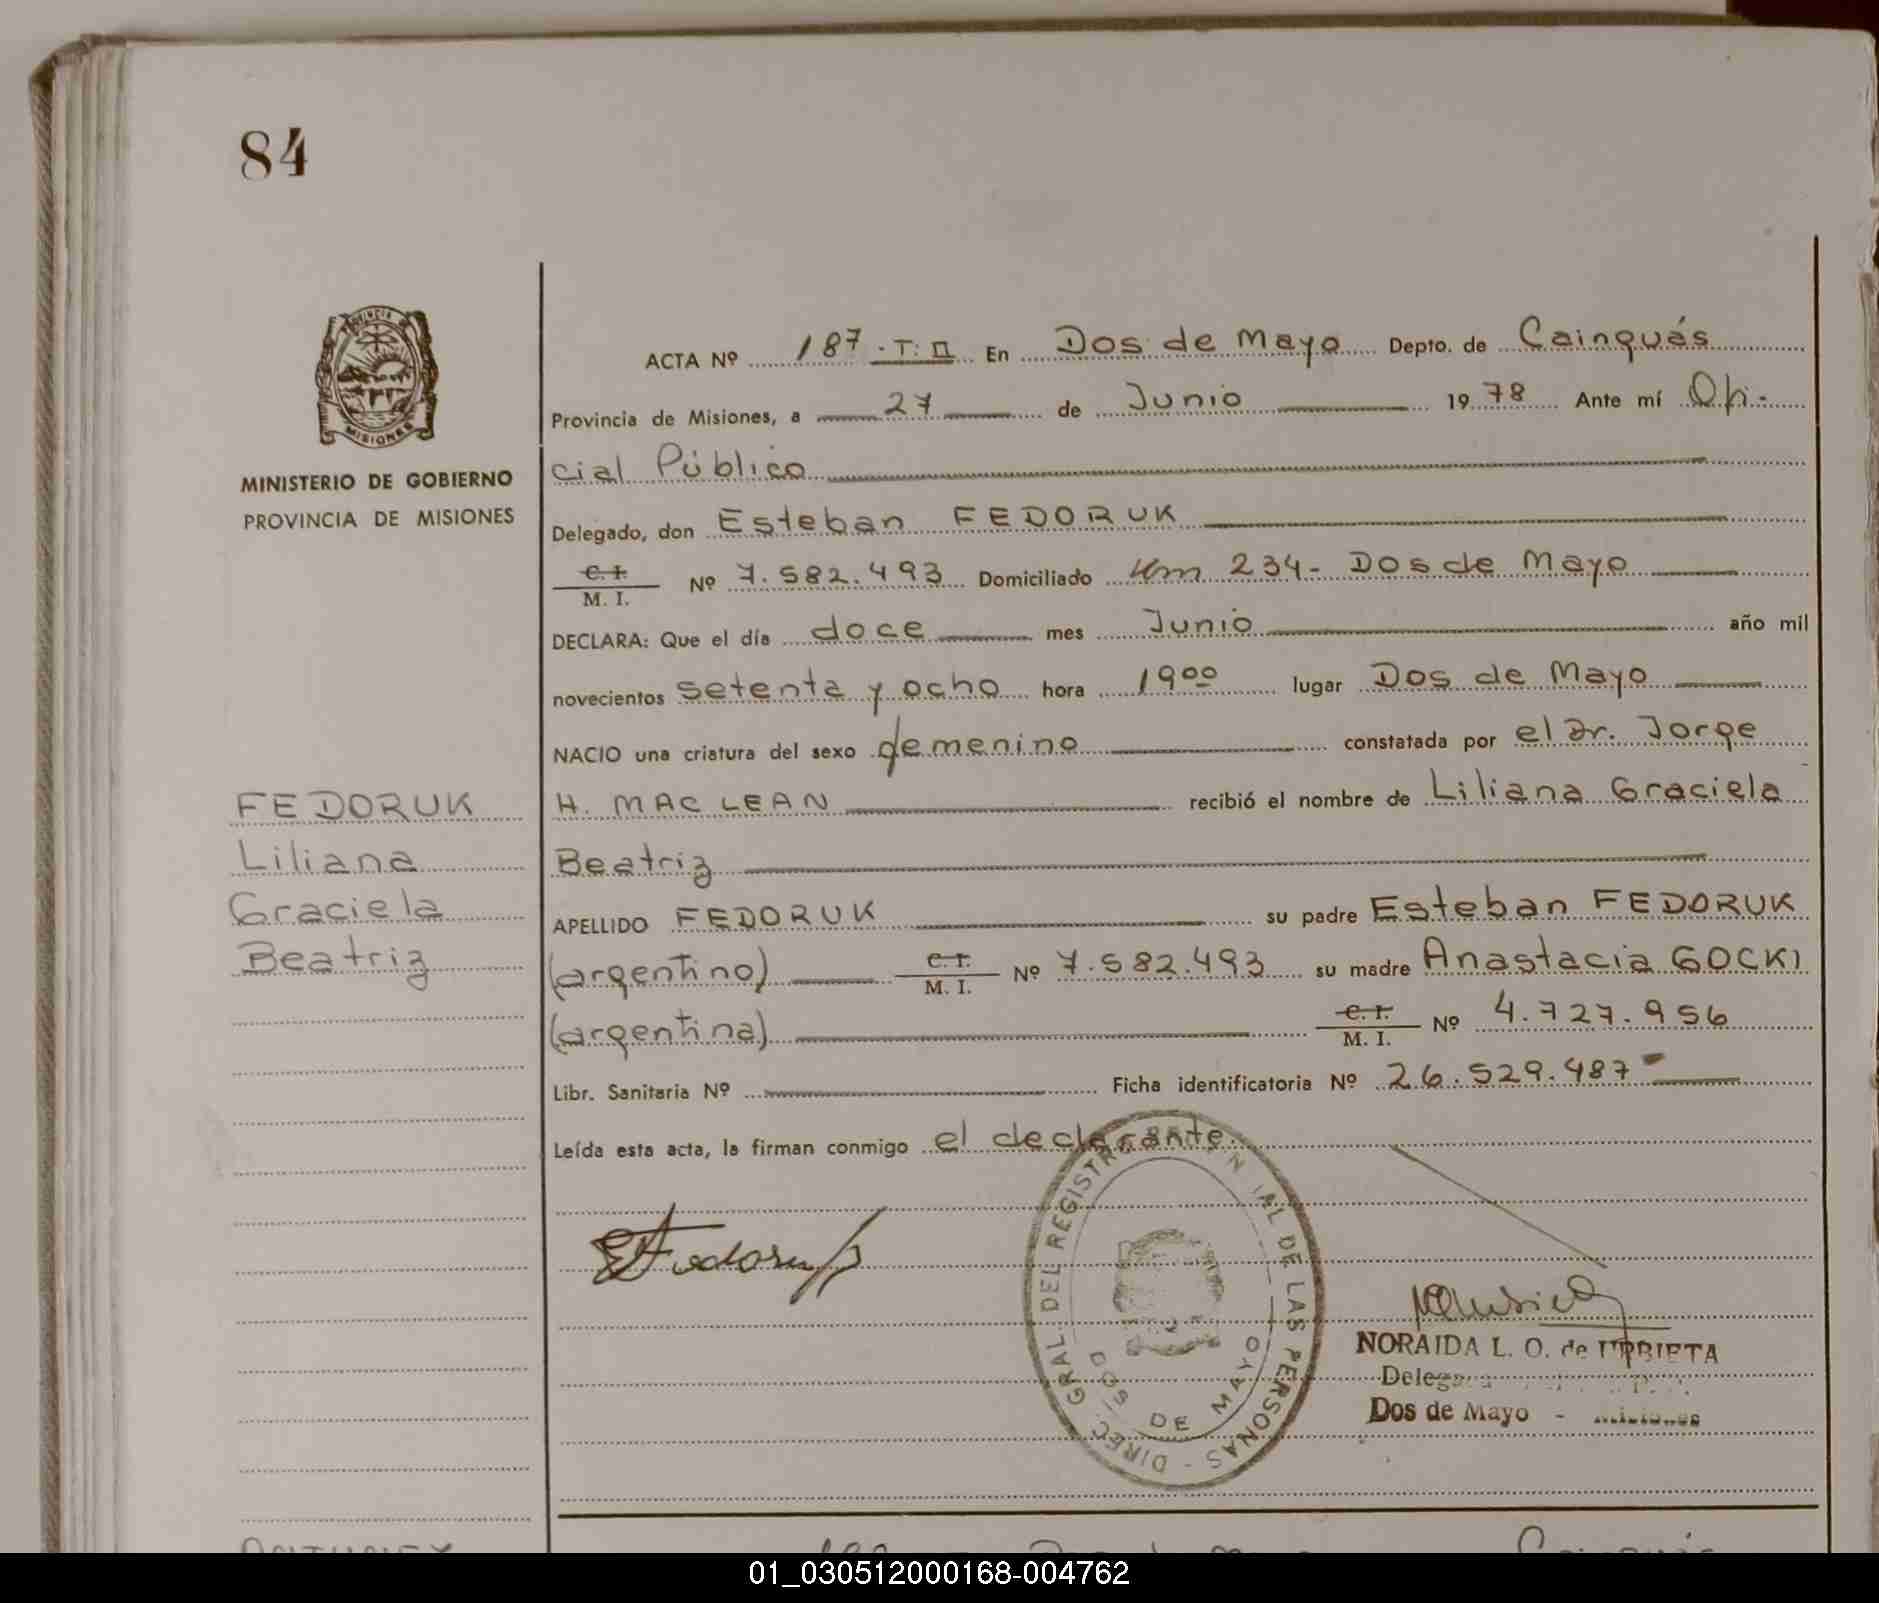 84
PROVINCIA
MISIONES
MINISTERIO DE GOBIERNO
PROVINCIA DE MISIONES
ACTA Nº 187 - T: II En Dos de Mayo Depto. de Cainguás
Provincia de Misiones, a 27 de Junio 1978 Ante mí Ofi-
cial Público
Delegado, don Esteban FEDORUK
C. I.
M. I. Nº 7.582.493 Domiciliado Km 234 - Dos de Mayo
DECLARA: Que el día doce mes Junio año mil
novecientos setenta y ocho hora 19 00 lugar Dos de Mayo
NACIO una criatura del sexo femenino constatada por el Dr. Jorge
H. MAC LEAN recibió el nombre de Liliana Graciela
Beatriz
APELLIDO FEDORUK su padre Esteban FEDORUK
(argentino) C. I. M. I. Nº 7.582.493 su madre Anastacia GOCKI
(argentina) C. I. M. I. Nº 4.727.956
Libr. Sanitaria Nº Ficha identificatoria Nº 26.529.487
Leída esta acta, la firman conmigo el declarante.
FEDORUK
Liliana
Graciela
Beatriz
E Fedoruk
DIREC. GRAL. DEL REGISTRO DE LAS PERSONAS -
DOS DE MAYO
NORAIDA L. O. de URBIETA
Dos de Mayo - Misiones
01_030512000168-004762